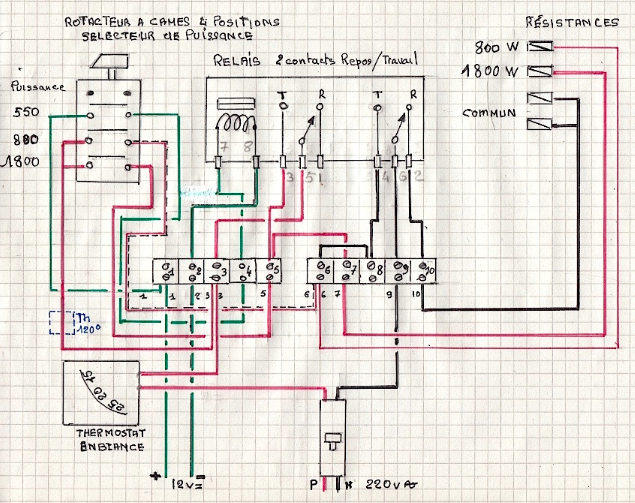 ROTACTEUR A CAMES 4 POSITIONS
SELECTEUR de PUISSANCE
RÉSISTANCES
800 W
1800 W
COMMUN
RELAIS 2 contacts Repos/Travail
T R T R
7 8 3 5 1 4 6 2
Puissance
550
800
1800
1 2 3 4 5 6 7 8 9 10
1 1 2 3 3 5 6 6 7 9 10
Th
120°
15 20 25
THERMOSTAT
AMBIANCE
+ 12v =
P N 220v ~